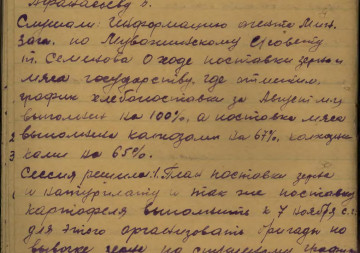 Афанасьеву В.
Слушали: Информацию агента Мин.
Заг. по Мувожинскому с/совету
т. Семенова О ходе поставки зерна и
мяса государству, где отметил
график хлебопоставки за Август м-ц
выполнен на 100%, а поставка мяса
выполнена колхозами на 67%
2 ками на 65%.
3 Сессия решила: 1. План поставки зерна
и натуроплату и так же поставку
картофеля выполнить к 7 ноября с.г.
для этого организовать бригады по
вывозке зерна по